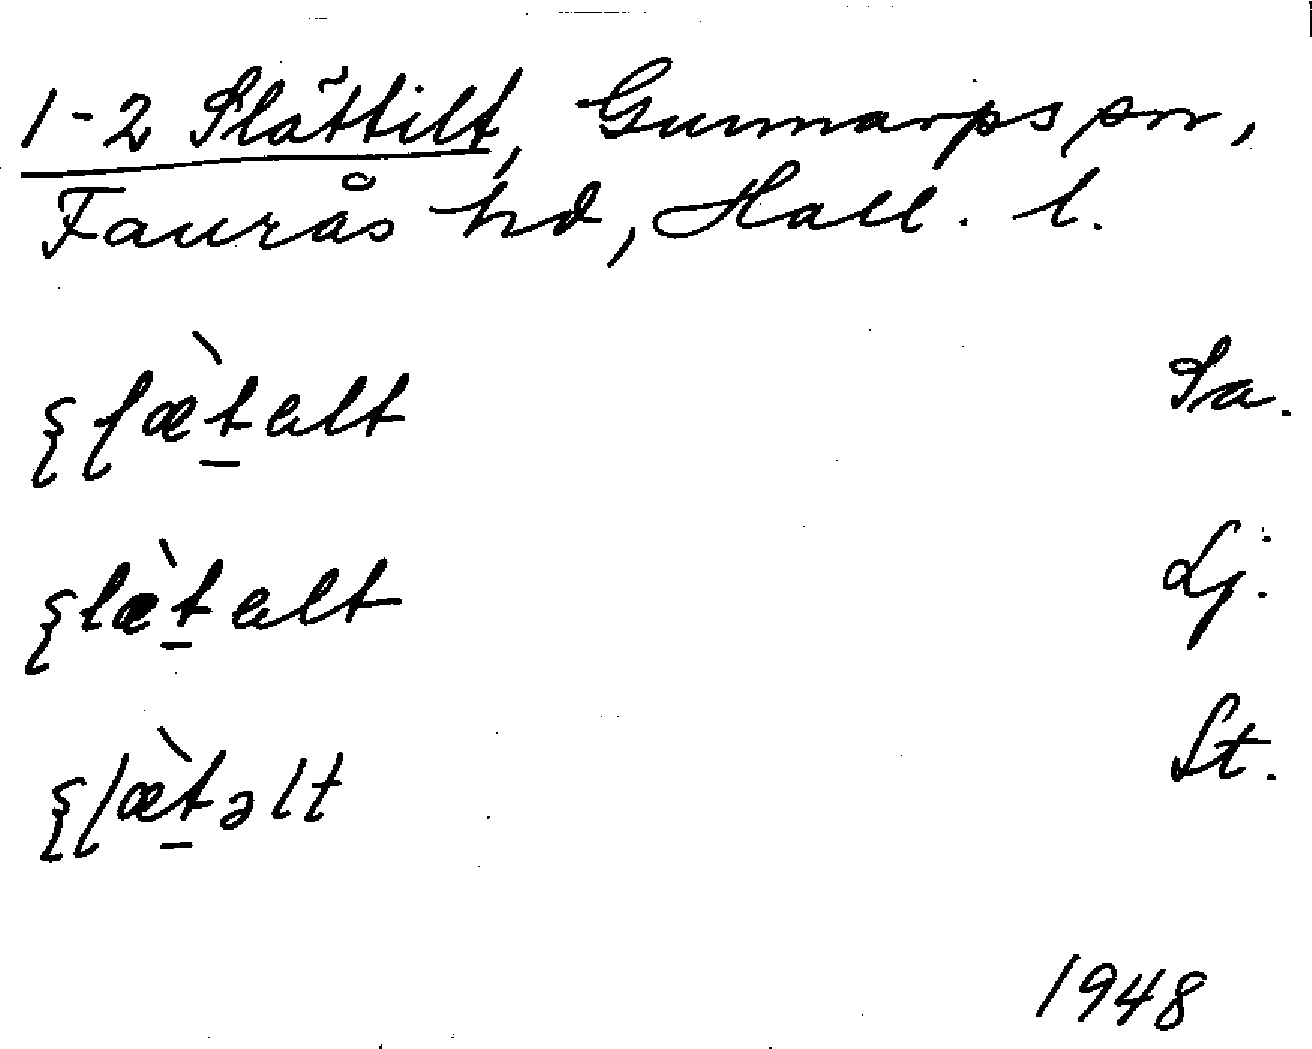 1-2 Slättilt, Gunnarps sn,
Faurås hd, Hall. l.
ʂɭæ̀t̲alt Sa.
ʂlæ̀t̲alt Lj.
ʂɭæ̀t̲əlt St.
1948